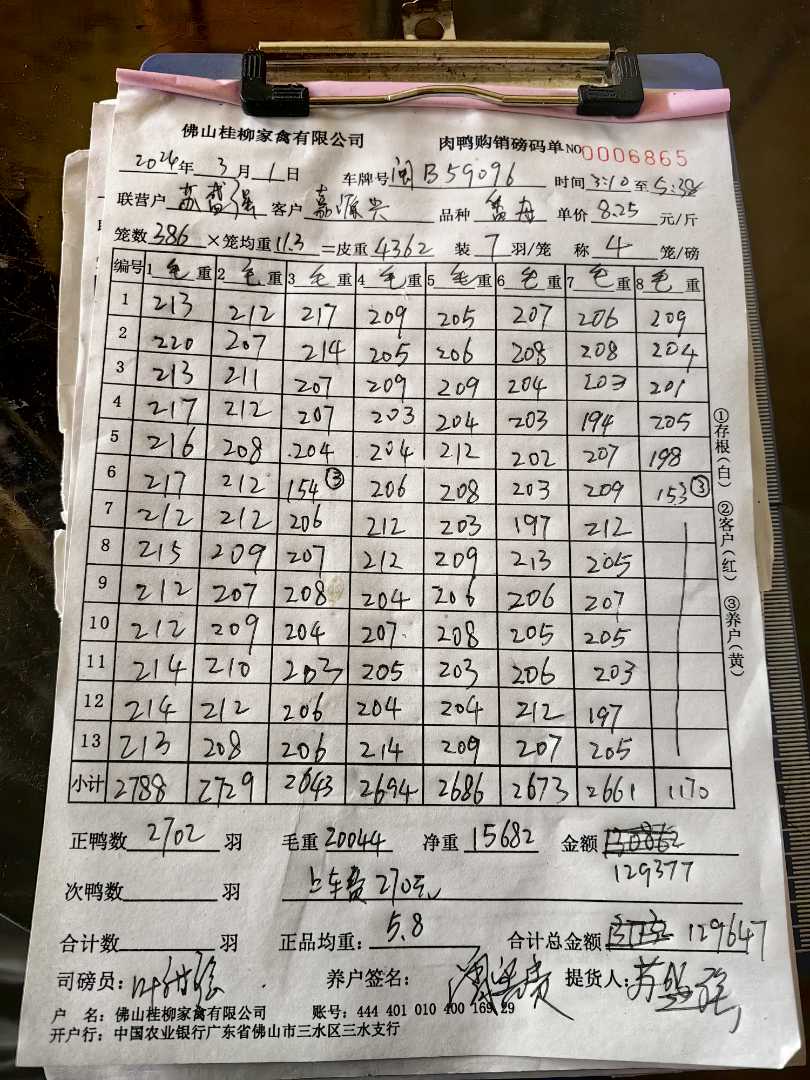 佛山桂柳家禽有限公司 肉鸭购销磅码单 NO 0006865
2024年 3月 1日 车牌号 闽B59096 时间 3:10 至 5:38
联营户 客户 嘉源兴 品种 单价 8.25 元/斤
笼数 386 ×笼均重 11.3 =皮重 4362 装 7 羽/笼 称 4 笼/磅
编号 1 毛重 2 毛重 3 毛重 4 毛重 5 毛重 6 毛重 7 毛重 8 毛重
1 213 212 217 209 205 207 206 209
2 220 207 214 205 206 208 208 204
3 213 211 207 209 209 204 203 201
4 217 212 207 203 204 203 194 205
5 216 208 204 204 212 202 207 198
6 217 212 154③ 206 208 203 209 153③
7 212 212 206 212 203 197 212
8 215 209 207 212 209 213 205
9 212 207 208 204 206 206 207
10 212 209 204 207 208 205 205
11 214 210 203 205 203 206 203
12 214 212 206 204 204 212 197
13 213 208 206 214 209 207 205
小计 2788 2729 2643 2694 2686 2673 2661 1170
①存根(白) ②客户(红) ③养户(黄)
正鸭数 2702 羽 毛重 20044 净重 15682 金额 130862
129377
次鸭数 羽 上车费 270元
合计数 羽 正品均重: 5.8 合计总金额 129647
司磅员: 养户签名: 提货人:
户 名: 佛山桂柳家禽有限公司 账号: 444 401 010 400 169 29
开户行: 中国农业银行广东省佛山市三水区三水支行